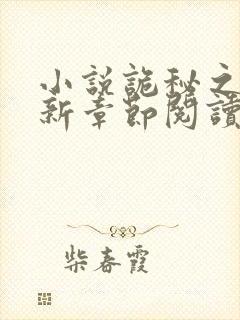 小說詭秘之
新章節閱讀
柴春霞